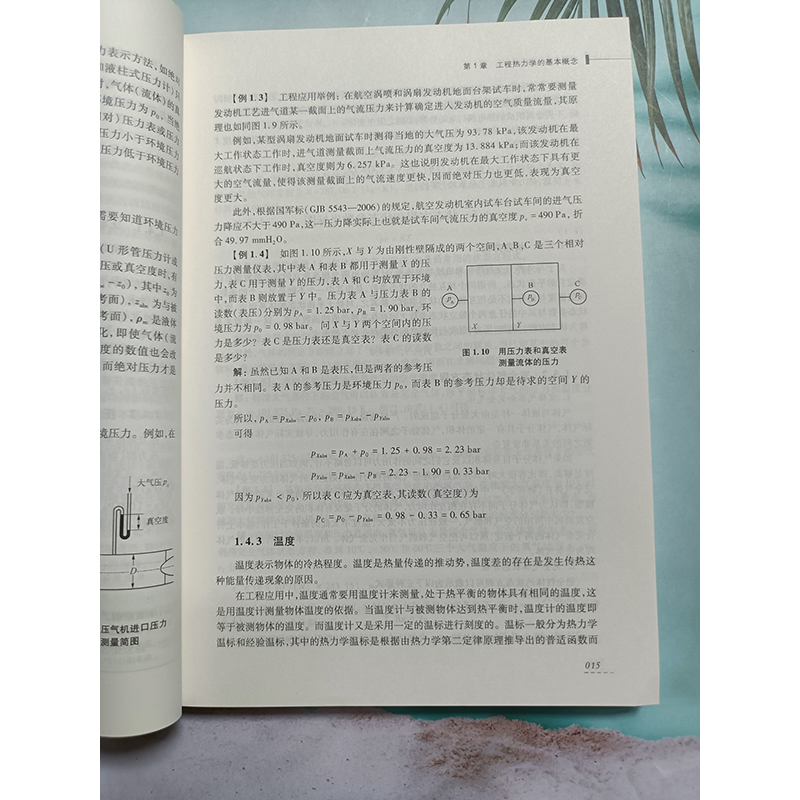 力表示方法,如绝对
如液柱式压力计)只
时,气体(流体)的真
境压力为p₀,当绝
对)压力表或压力
压力小于环境压力
压力低于环境压力
需要知道环境压力
(U形管压力计或
压或真空度时,有
考面),
化,即使气体(流
度的数值也会改
而绝对压力才是
境压力。例如,在
大气压
真空度
D
压气机进口压力
测量简图
第1章 工程热力学的基本概念
【例1.3】 工程应用举例:在航空涡喷和涡扇发动机地面台架试车时,常常要测量
发动机工艺进气道某一截面上的气流压力来计算确定进入发动机的空气质量流量,其原
理也如同图1.9所示。
例如,某型涡扇发动机地面试车时测得当地的大气压为93.78 kPa,该发动机在最
大工作状态下工作时,进气道测量截面上气流压力的真空度为13.884 kPa;而该发动机在
巡航状态下工作时,真空度则为6.257 kPa。这也说明发动机在最大工作状态下具有更
大的空气流量,使得该测量截面上的气流速度更快,因而绝对压力也更低,表现为真空
度更大。
此外,根据国军标(GJB 5543—2006)的规定,航空发动机室内试车台试车间的进气压
力降应不大于490 Pa,这一压力降实际上也就是试车间气流压力的真空度pᵥ=490 Pa,折
合49.97 mmH₂O。
【例1.4】 如图1.10所示,X与Y为由刚性壁隔成的两个空间,A、B、C是三个相对
压力测量仪表,其中表A和表B都用于测量X的压
力,表C用于测量Y的压力,表A和C均放置于环境
中,而表B则放置于Y中。压力表A与压力表B的
读数(表压)分别为p_A=1.25 bar,p_B=1.90 bar,环
境压力为p₀=0.98 bar。问X与Y两个空间内的压
力是多少?表C是压力表还是真空表?表C的读数
是多少?
A
p_A
B
p_B
C
p_C
X
Y
图1.10 用压力表和真空表
测量流体的压力
解:虽然已知A和B是表压,但是两者的参考压
力并不相同。表A的参考压力是环境压力p₀,而表B的参考压力却是待求的空间Y的
压力。
所以,p_A=p_Xabs−p₀,p_B=p_Xabs−p_Yabs
可得
p_Xabs=p_A+p₀=1.25+0.98=2.23 bar
p_Yabs=p_Xabs−p_B=2.23−1.90=0.33 bar
因为p_Yabs<p₀,所以表C应为真空表,其读数(真空度)为
p_C=p₀−p_Yabs=0.98−0.33=0.65 bar
1.4.3 温度
温度表示物体的冷热程度。温度是热量传递的推动势,温度差的存在是发生传热这
种能量传递现象的原因。
在工程应用中,温度通常要用温度计来测量,处于热平衡的物体具有相同的温度,这
是用温度计测量物体温度的依据。当温度计与被测物体达到热平衡时,温度计的温度即
等于被测物体的温度。而温度计又是采用一定的温标进行刻度的。温标一般分为热力学
温标和经验温标,其中的热力学温标是根据由热力学第二定律原理推导出的普适函数而
015